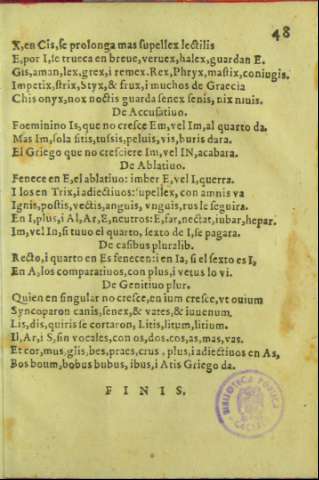 48
X, en Cis, se prolonga mas supellex lectilis
E, por I, se trueca en breue, veruex, halex, guardan E.
Gis, aman, lex, grex, i remex. Rex, Phryx, mastix, coniugis.
Impetix, strix, Styx, & frux, i muchos de Graecia
Chis onyx, nox noctis guarda senex senis, nix niuis.
De Accusatiuo.
Foeminino Is, que no cresce Em, vel Im, al quarto da.
Mas Im, sola sitis, tussis, peluis, vis, buris dara.
El Griego que no cresciere Im, vel IN, acabara.
De Ablatiuo.
Fenece en E, el ablatiuo: imber E, vel I, querra.
I los en Trix, i adiectiuos: supellex, con amnis va
Ignis, postis, vectis, anguis, vnguis, rus le seguira.
En I, plus, i Al, Ar, E, neutros: E, far, nectar, iubar, hepar.
Im, vel In, si tuuo el quarto, sexto de I, se pagara.
De casibus pluralib.
Recto, i quarto en Es fenecen: i en Ia, si el sexto es I,
En A, los comparatiuos, con plus, i vetus lo vi.
De Genitiuo plur.
Quien en singular no cresce, en ium cresce, vt ouium
Syncoparon canis, senex, & vates, & iuuenum.
Lis, dis, quiris se cortaron, Litis, litum, litium.
Il, Ar, i S, sin vocales, con os, dos, cos, as, mas, vas.
Et cor, mus, glis, bes, praes, crus, plus, i adiectiuos en As,
Bos boum, bobus bubus, ibus, i Atis Griego da.
F I N I S.
BIBLIOTECA PUBLICA
CACERES